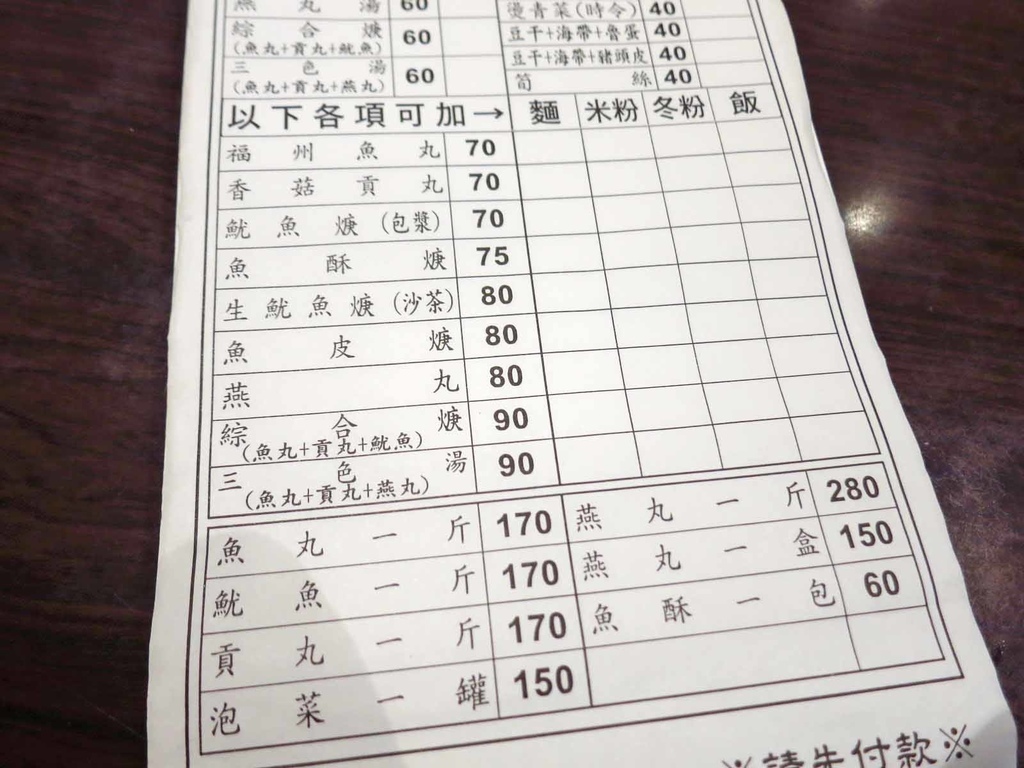 燕丸湯 60
綜合焿 60
(魚丸+貢丸+魷魚)
三色湯 60
(魚丸+貢丸+燕丸)
燙青菜(時令) 40
豆干+海帶+魯蛋 40
豆干+海帶+豬頭皮 40
筍絲 40
以下各項可加→ 麵 米粉 冬粉 飯
福州魚丸 70
香菇貢丸 70
魷魚焿(包漿) 70
魚酥焿 75
生魷魚焿(沙茶) 80
魚皮焿 80
燕丸 80
綜合焿 90
(魚丸+貢丸+魷魚)
三色湯 90
(魚丸+貢丸+燕丸)
魚丸一斤 170 燕丸一斤 280
魷魚一斤 170 燕丸一盒 150
貢丸一斤 170 魚酥一包 60
泡菜一罐 150
※請先付款※